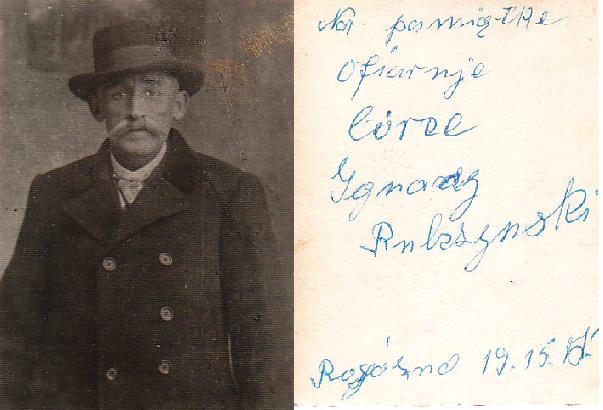 Na pamiątkę
Ofiarnje
Córce
Ignaczy
Rukszynski
Rogózno 19.15.